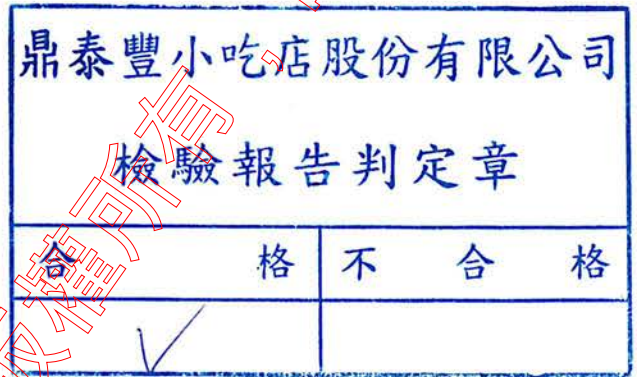 鼎泰豐小吃店股份有限公司
檢驗報告判定章
合格 不合格
✓
版權所有，